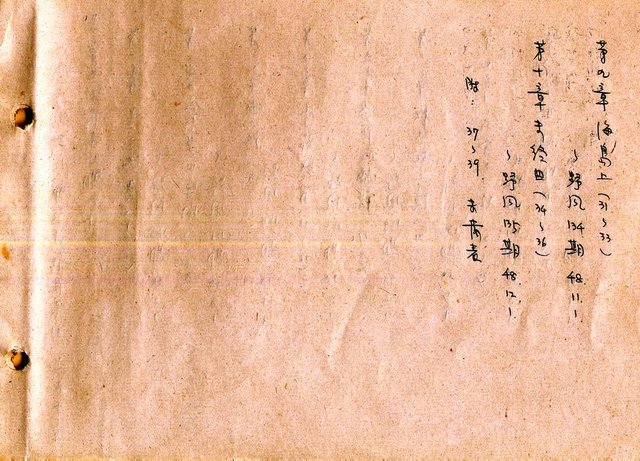 第九章 海島上(31~33)
~野风134期 48.11.1
第十章 未終曲(34~36)
~野风135期 48.12.1.
附: 37~39. 未發表